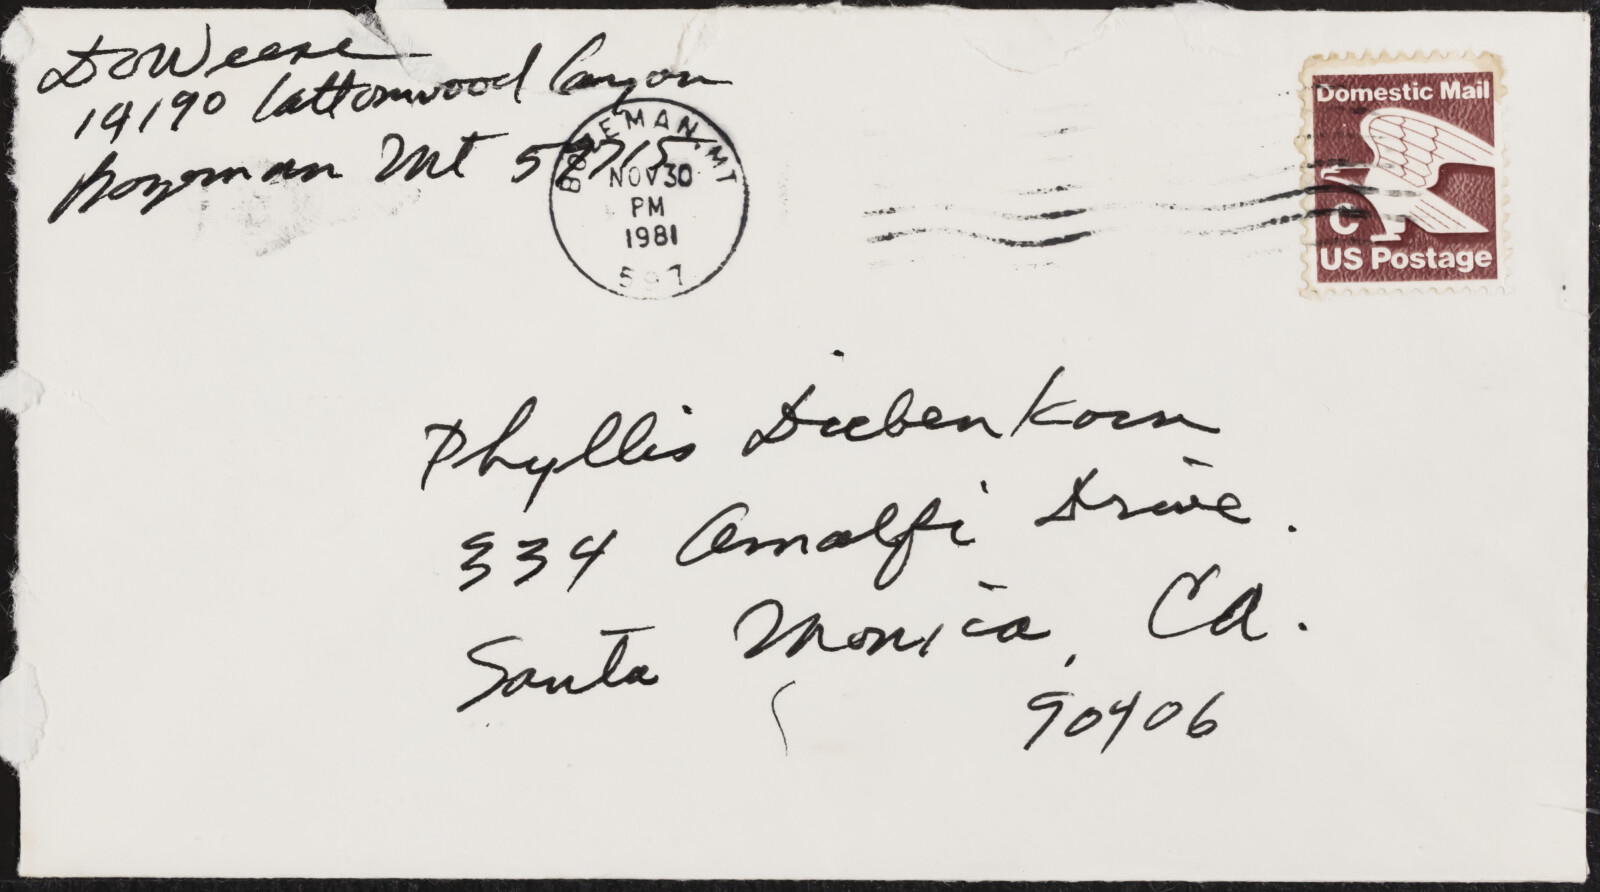 DeWeese
14190 Cottonwood Canyon
Bozeman Mt 59715
BOZEMAN, MT
NOV 30
PM
1981
597
Domestic Mail
C
US Postage
Phyllis Diebenkorn
334 Amalfi Drive.
Santa Monica, CA.
90406